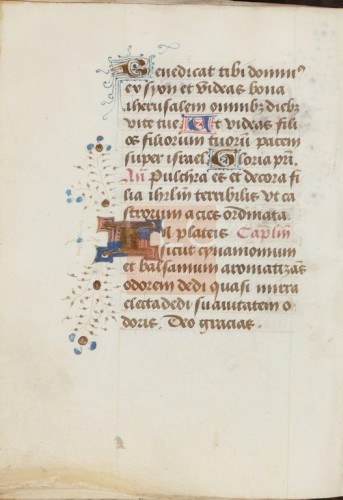 Benedicat tibi domin⁹
ex syon et videas bona
iherusalem omnibꝫ diebꝫ
vite tue Et videas fili
os filiorum tuorū pacem
super israel Gloria pr̄i.
An̄ Pulchra es et decora fi
lia ihrl̄m terribilis ut ca
strorum acies ordinata.
In plateis Capl̄m
sicut cynamomum
et balsamum aromatizās
odorem dedi quasi mirra
electa dedi suauitatem o
doris. Deo gracias.